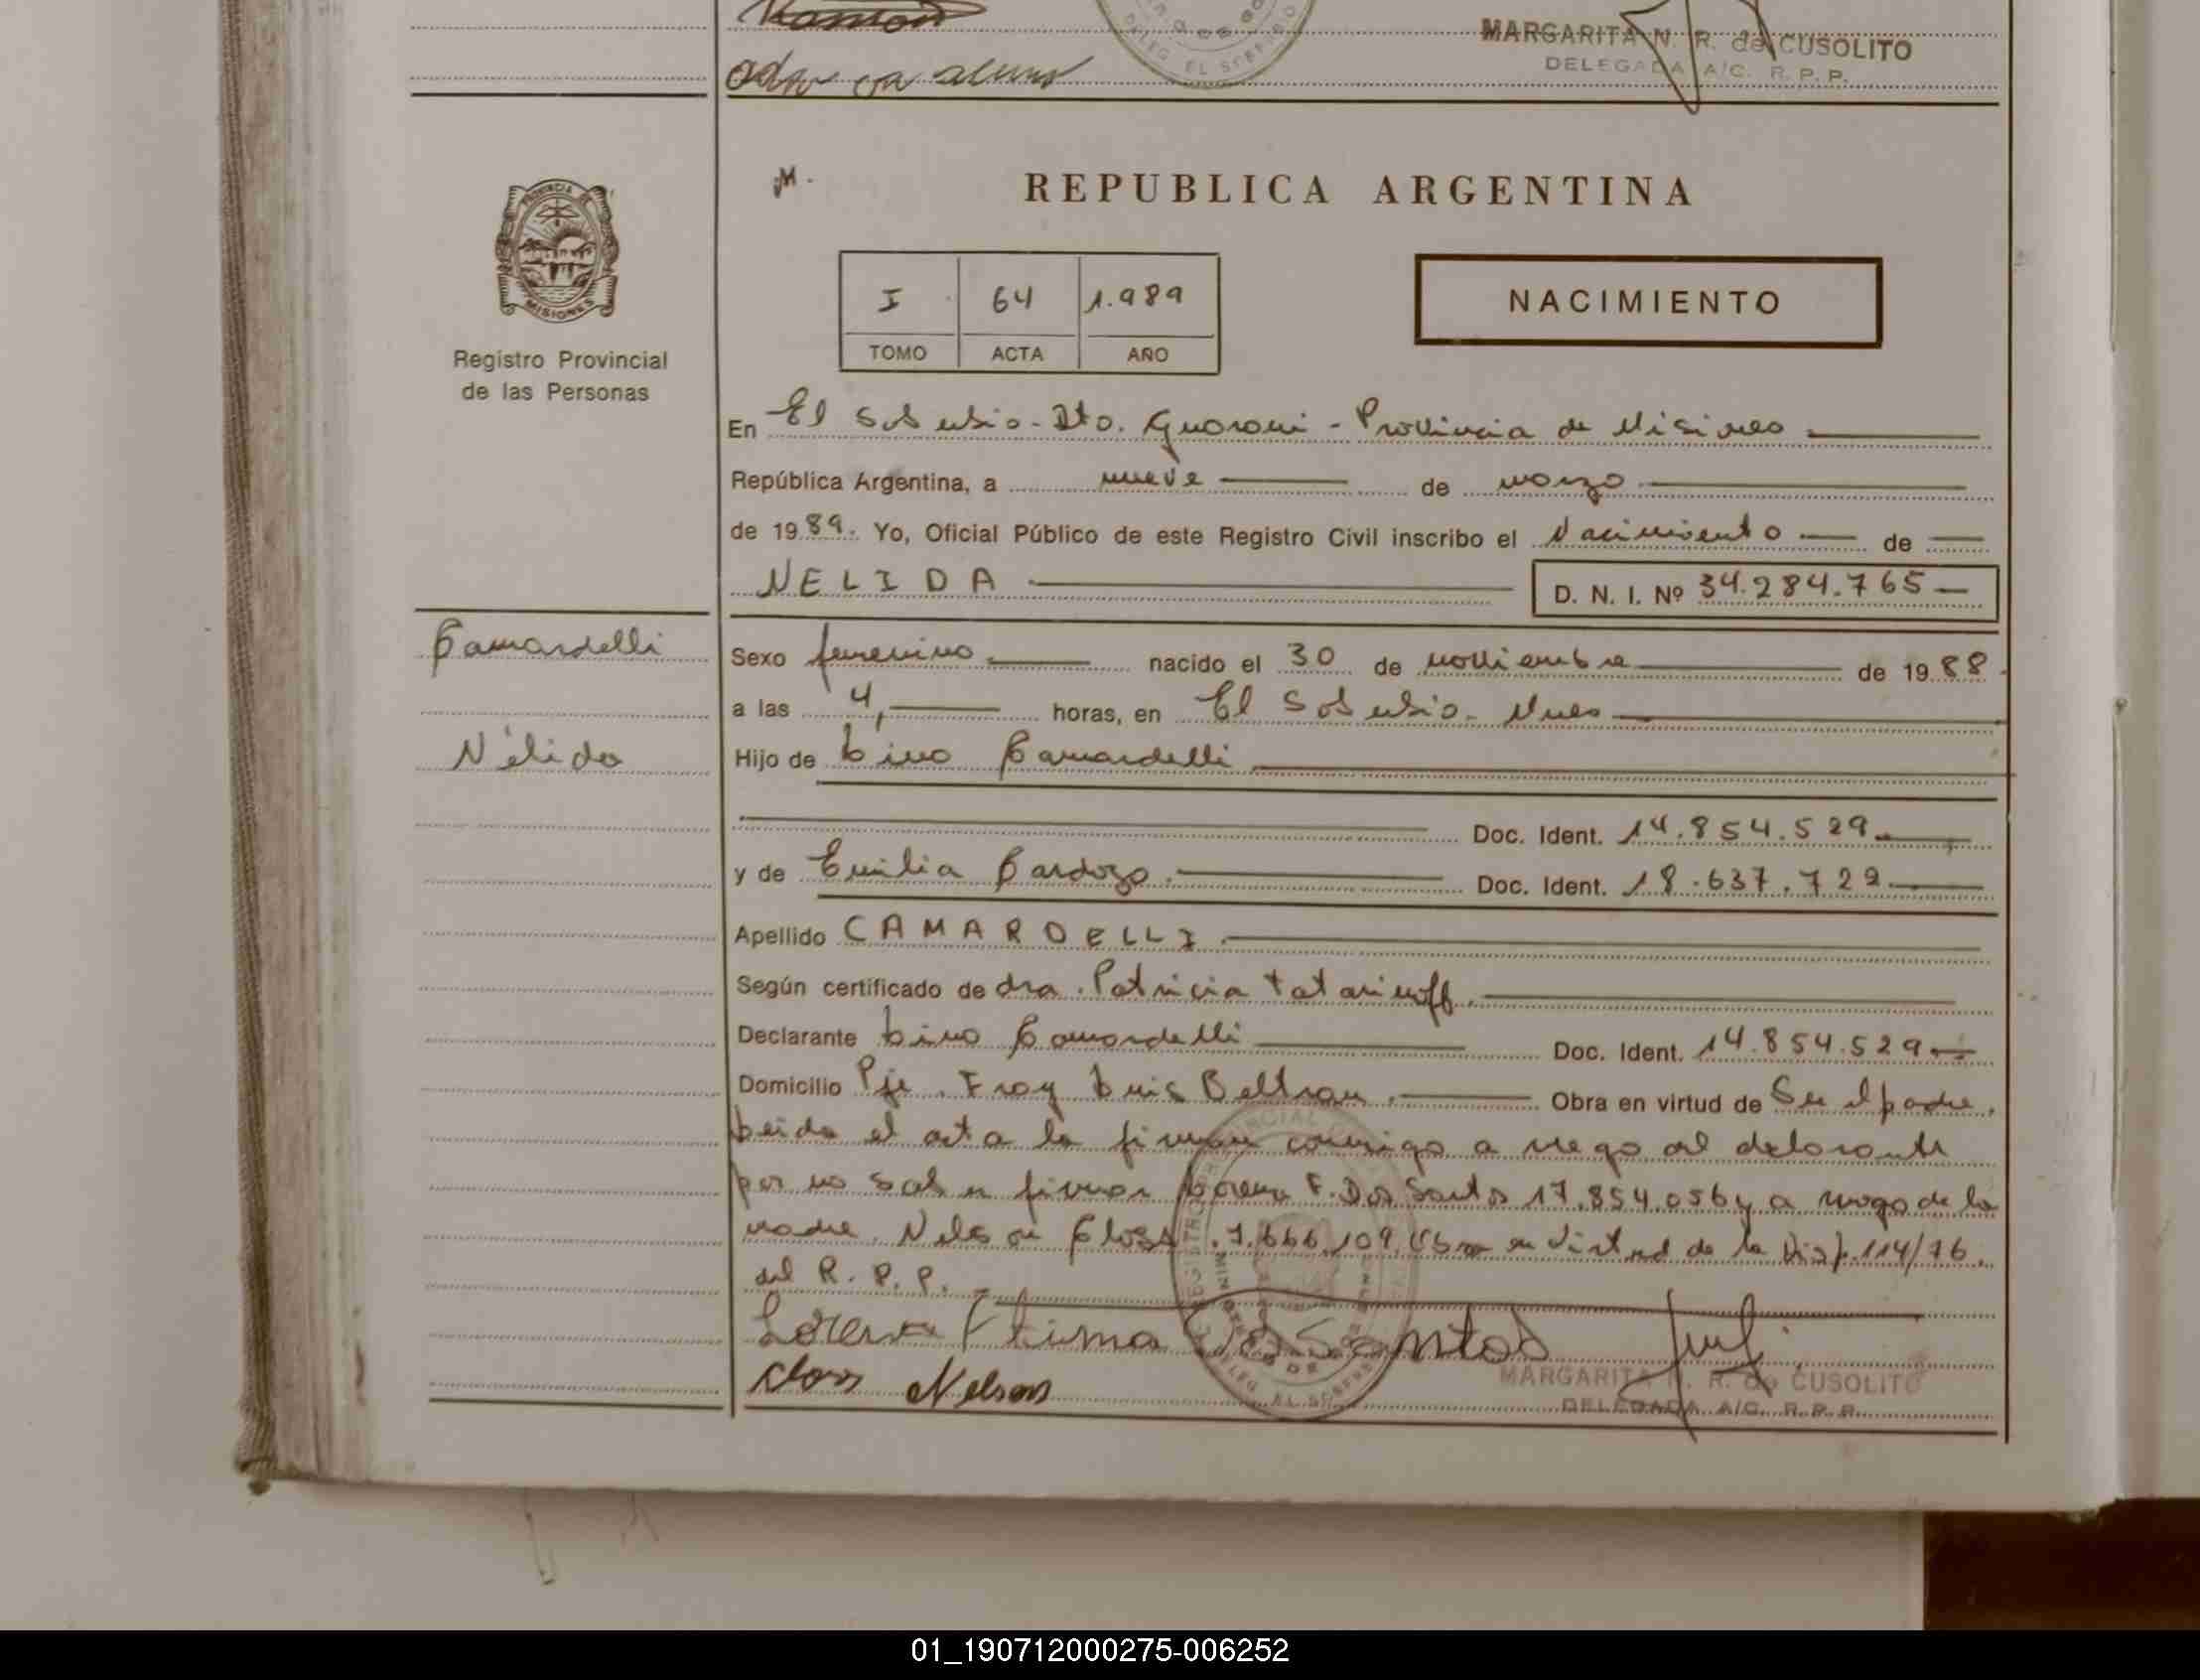 Ramon
MARGARITA N. R. de CUSOLITO
DELEGADA A/C. R. P. P.
DELEG EL SOBERBIO
M.
REPUBLICA ARGENTINA
PROVINCIA DE
MISIONES
I 64 1.989
TOMO ACTA AÑO
NACIMIENTO
Registro Provincial
de las Personas
En El Soberbio - Dto. Guarani - Provincia de Misiones
República Argentina, a nueve de marzo
de 1989. Yo, Oficial Público de este Registro Civil inscribo el Nacimiento de
NELIDA D. N. I. Nº 34.284.765
Camardelli
Sexo femenino nacido el 30 de noviembre de 1988
a las 4, horas, en El Soberbio - Mnes
Nélida
Hijo de Lino Camardelli
Doc. Ident. 14.854.529
y de Emilia Cardozo. Doc. Ident. 18.637.729
Apellido CAMARDELLI
Según certificado de dra. Patricia Tatarinoff.
Declarante Lino Camardelli Doc. Ident. 14.854.529
Domicilio Pje. Fray Luis Beltran. Obra en virtud de Ser el padre.
Leida el acta la firman conmigo a ruego del declarante
por no saber firmar Lorena F. Dos Santos 17.854.056 y a ruego de la
madre. Nelson Closs .7.666.109. Obra en virtud de la Disp. 114/76.
del R. P. P.
Lorena Fatima Dos Santos
Closs Nelson
MARGARITA N. R. de CUSOLITO
DELEGADA A/C. R. P. P.
01_190712000275-006252